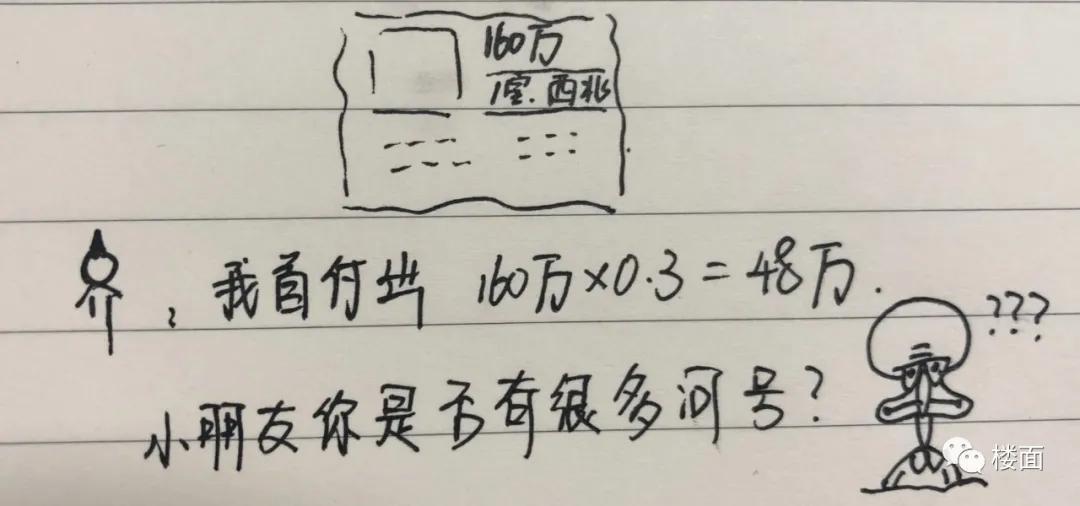 160万
1室.西北
,我首付出 160万×0.3=48万.
???
小朋友你是否有很多问号?
楼面